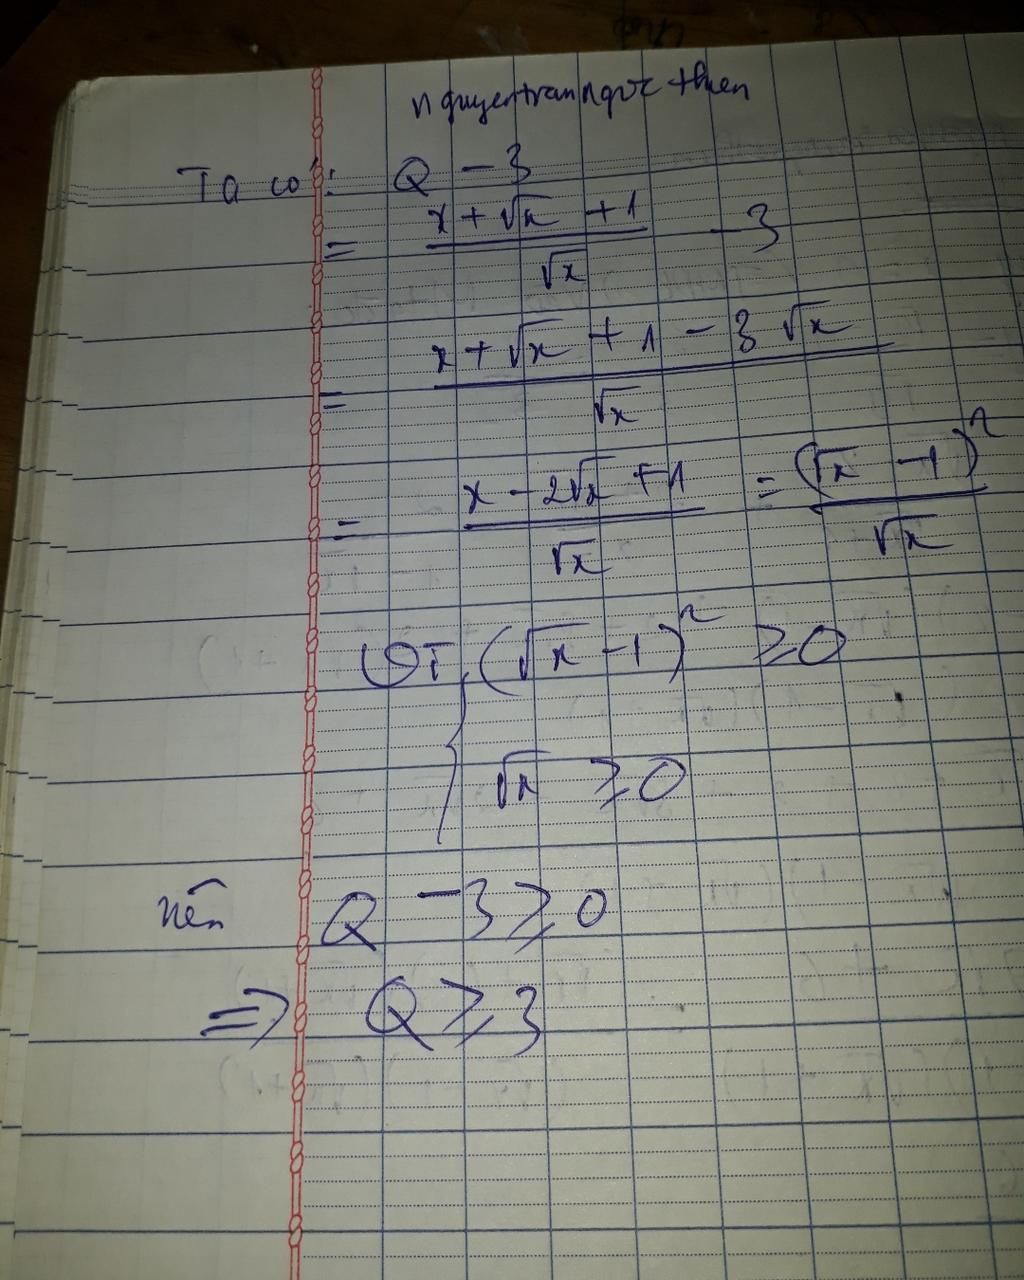 nguyentranngoc then
Ta có: Q - 3
= \frac{x + \sqrt{x} + 1}{\sqrt{x}} - 3
= \frac{x + \sqrt{x} + 1 - 3\sqrt{x}}{\sqrt{x}}
= \frac{x - 2\sqrt{x} + 1}{\sqrt{x}} = \frac{(\sqrt{x} - 1)^2}{\sqrt{x}}
(\sqrt{x} - 1)^2 ≥ 0
\sqrt{x} ≥ 0
nên Q - 3 ≥ 0
=> Q ≥ 3